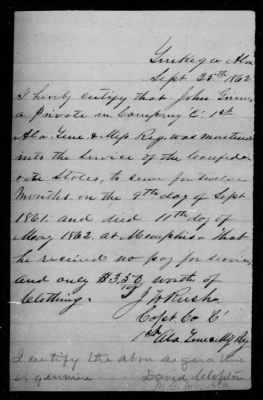 Tuskegee Ala
Sept 25th 1862
I hereby certify that John
a private in Company "E" 1st
Ala. Tenn & Miss Reg. was mustered
into the service of the Confeder-
ate States, to serve for twelve
months on the 9th day of Sept
1861. and died 11th day of
May 1862. at Memphis. That
he received no pay for services
and only worth of
Clothing.
J W Rush
Capt Co "E"
1st Ala Tenn & M Reg
I certify the above signature
is genuine
David Clopton